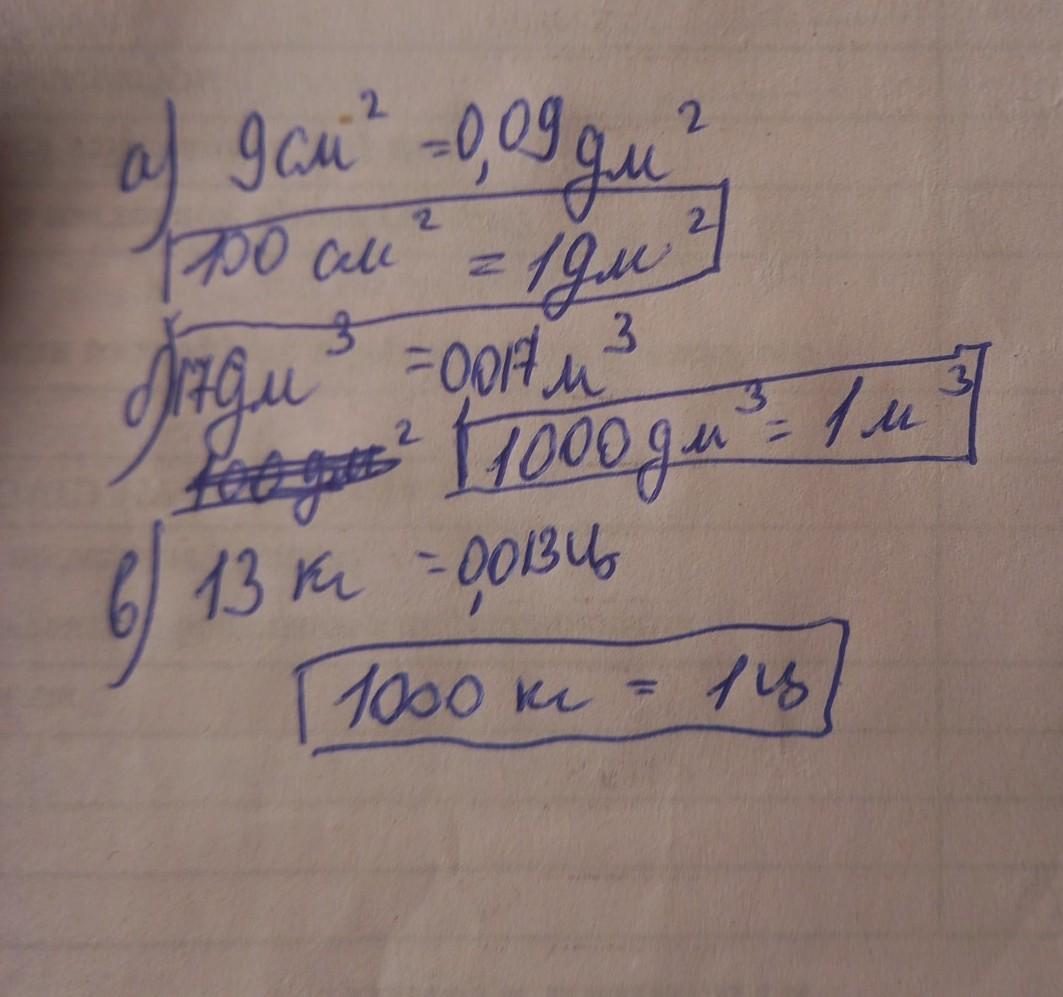 а) 9 см² = 0,09 дм²
100 см² = 1 дм²
б) 17 дм³ = 0017 м³
100 дм² 1000 дм³ = 1 м³
в) 13 кг = 0,013 ц
1000 кг = 1 ц